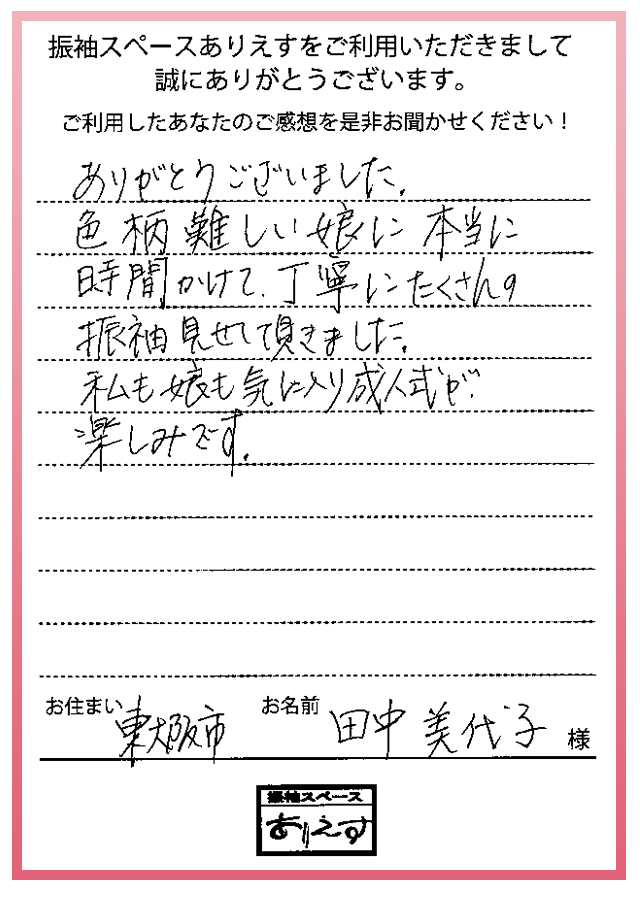 振袖スペースありえすをご利用いただきまして
誠にありがとうございます。
ご利用したあなたのご感想を是非お聞かせください！
ありがとうございました。
色柄難しい娘に本当に
時間かけて、丁寧にたくさんの
振袖見せて頂きました。
私も娘も気に入り成人式が
楽しみです。
お住まい 東大阪市 お名前 田中美代子 様
振袖スペース
ありえす